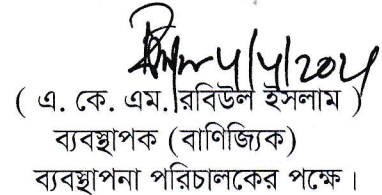 ( এ. কে. এম. রবিউল ইসলাম )
ব্যবস্থাপক (বাণিজ্যিক)
ব্যবস্থাপনা পরিচালকের পক্ষে।